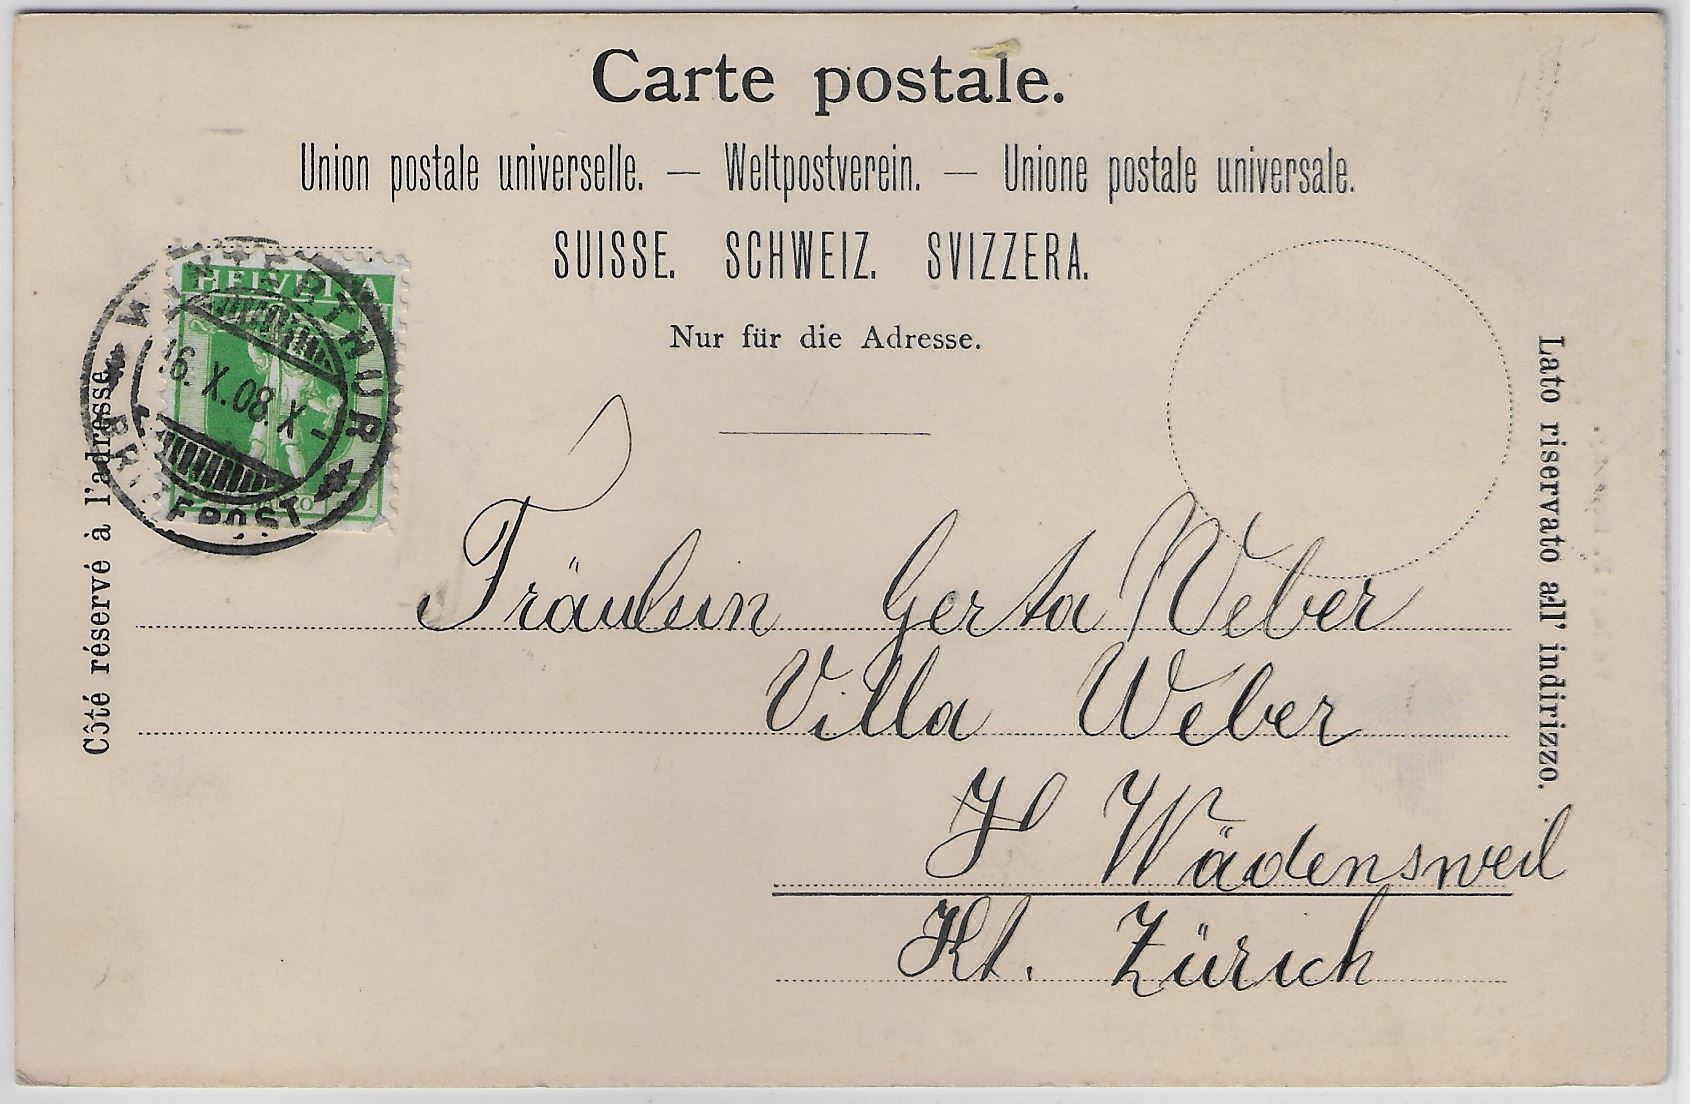 Carte postale.
Union postale universelle. — Weltpostverein. — Unione postale universale.
SUISSE. SCHWEIZ. SVIZZERA.
Nur für die Adresse.
HELVETIA
WINTERTHUR
16. X. 08. X -
BRIEFPOST
Côté réservé à l'adresse
Lato riservato all' indirizzo.
Fräulein Gerta Weber
Villa Weber
Wädensweil
Kt. Zürich